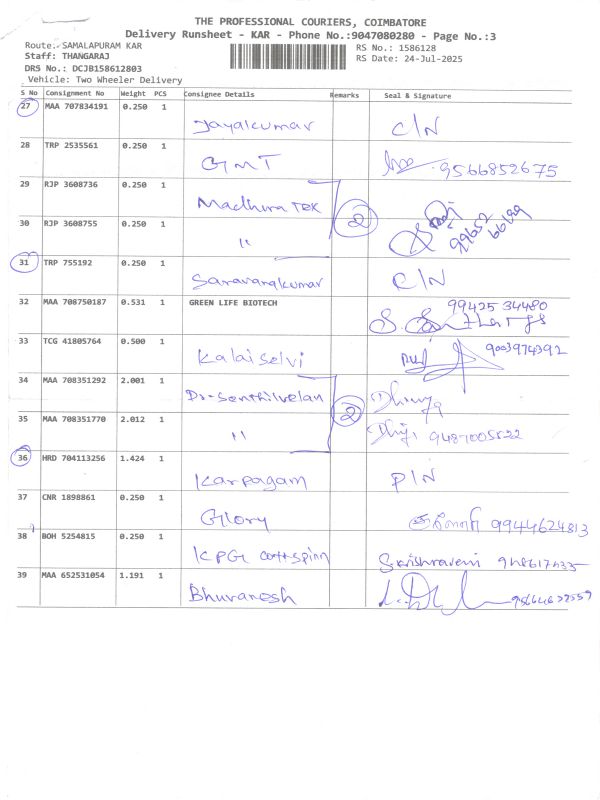 THE PROFESSIONAL COURIERS, COIMBATORE
Delivery Runsheet - KAR - Phone No.:9047080280 - Page No.:3
Route:- SAMALAPURAM KAR
RS No.: 1586128
Staff: THANGARAJ
RS Date: 24-Jul-2025
DRS No.: DCJB158612803
Vehicle: Two Wheeler Delivery
S No Consignment No Weight PCS Consignee Details Remarks Seal & Signature
27 MAA 707834191 0.250 1 Jayakumar C/N
28 TRP 2535561 0.250 1 GMT 9566852675
29 RJP 3608736 0.250 1 Madhura TEK 2
30 RJP 3608755 0.250 1 "
31 TRP 755192 0.250 1 Saravanakumar C/N
32 MAA 708750187 0.531 1 GREEN LIFE BIOTECH 99425 34480
33 TCG 41805764 0.500 1 Kalaiselvi 9003974392
34 MAA 708351292 2.001 1 Dr-Senthilvelan 2
35 MAA 708351770 2.012 1 " 9487005522
36 HRD 704113256 1.424 1 Karpagam P/N
37 CNR 1898861 0.250 1 Glory 9944624813
38 BOH 5254815 0.250 1 KPG
39 MAA 652531054 1.191 1 Bhuvanesh